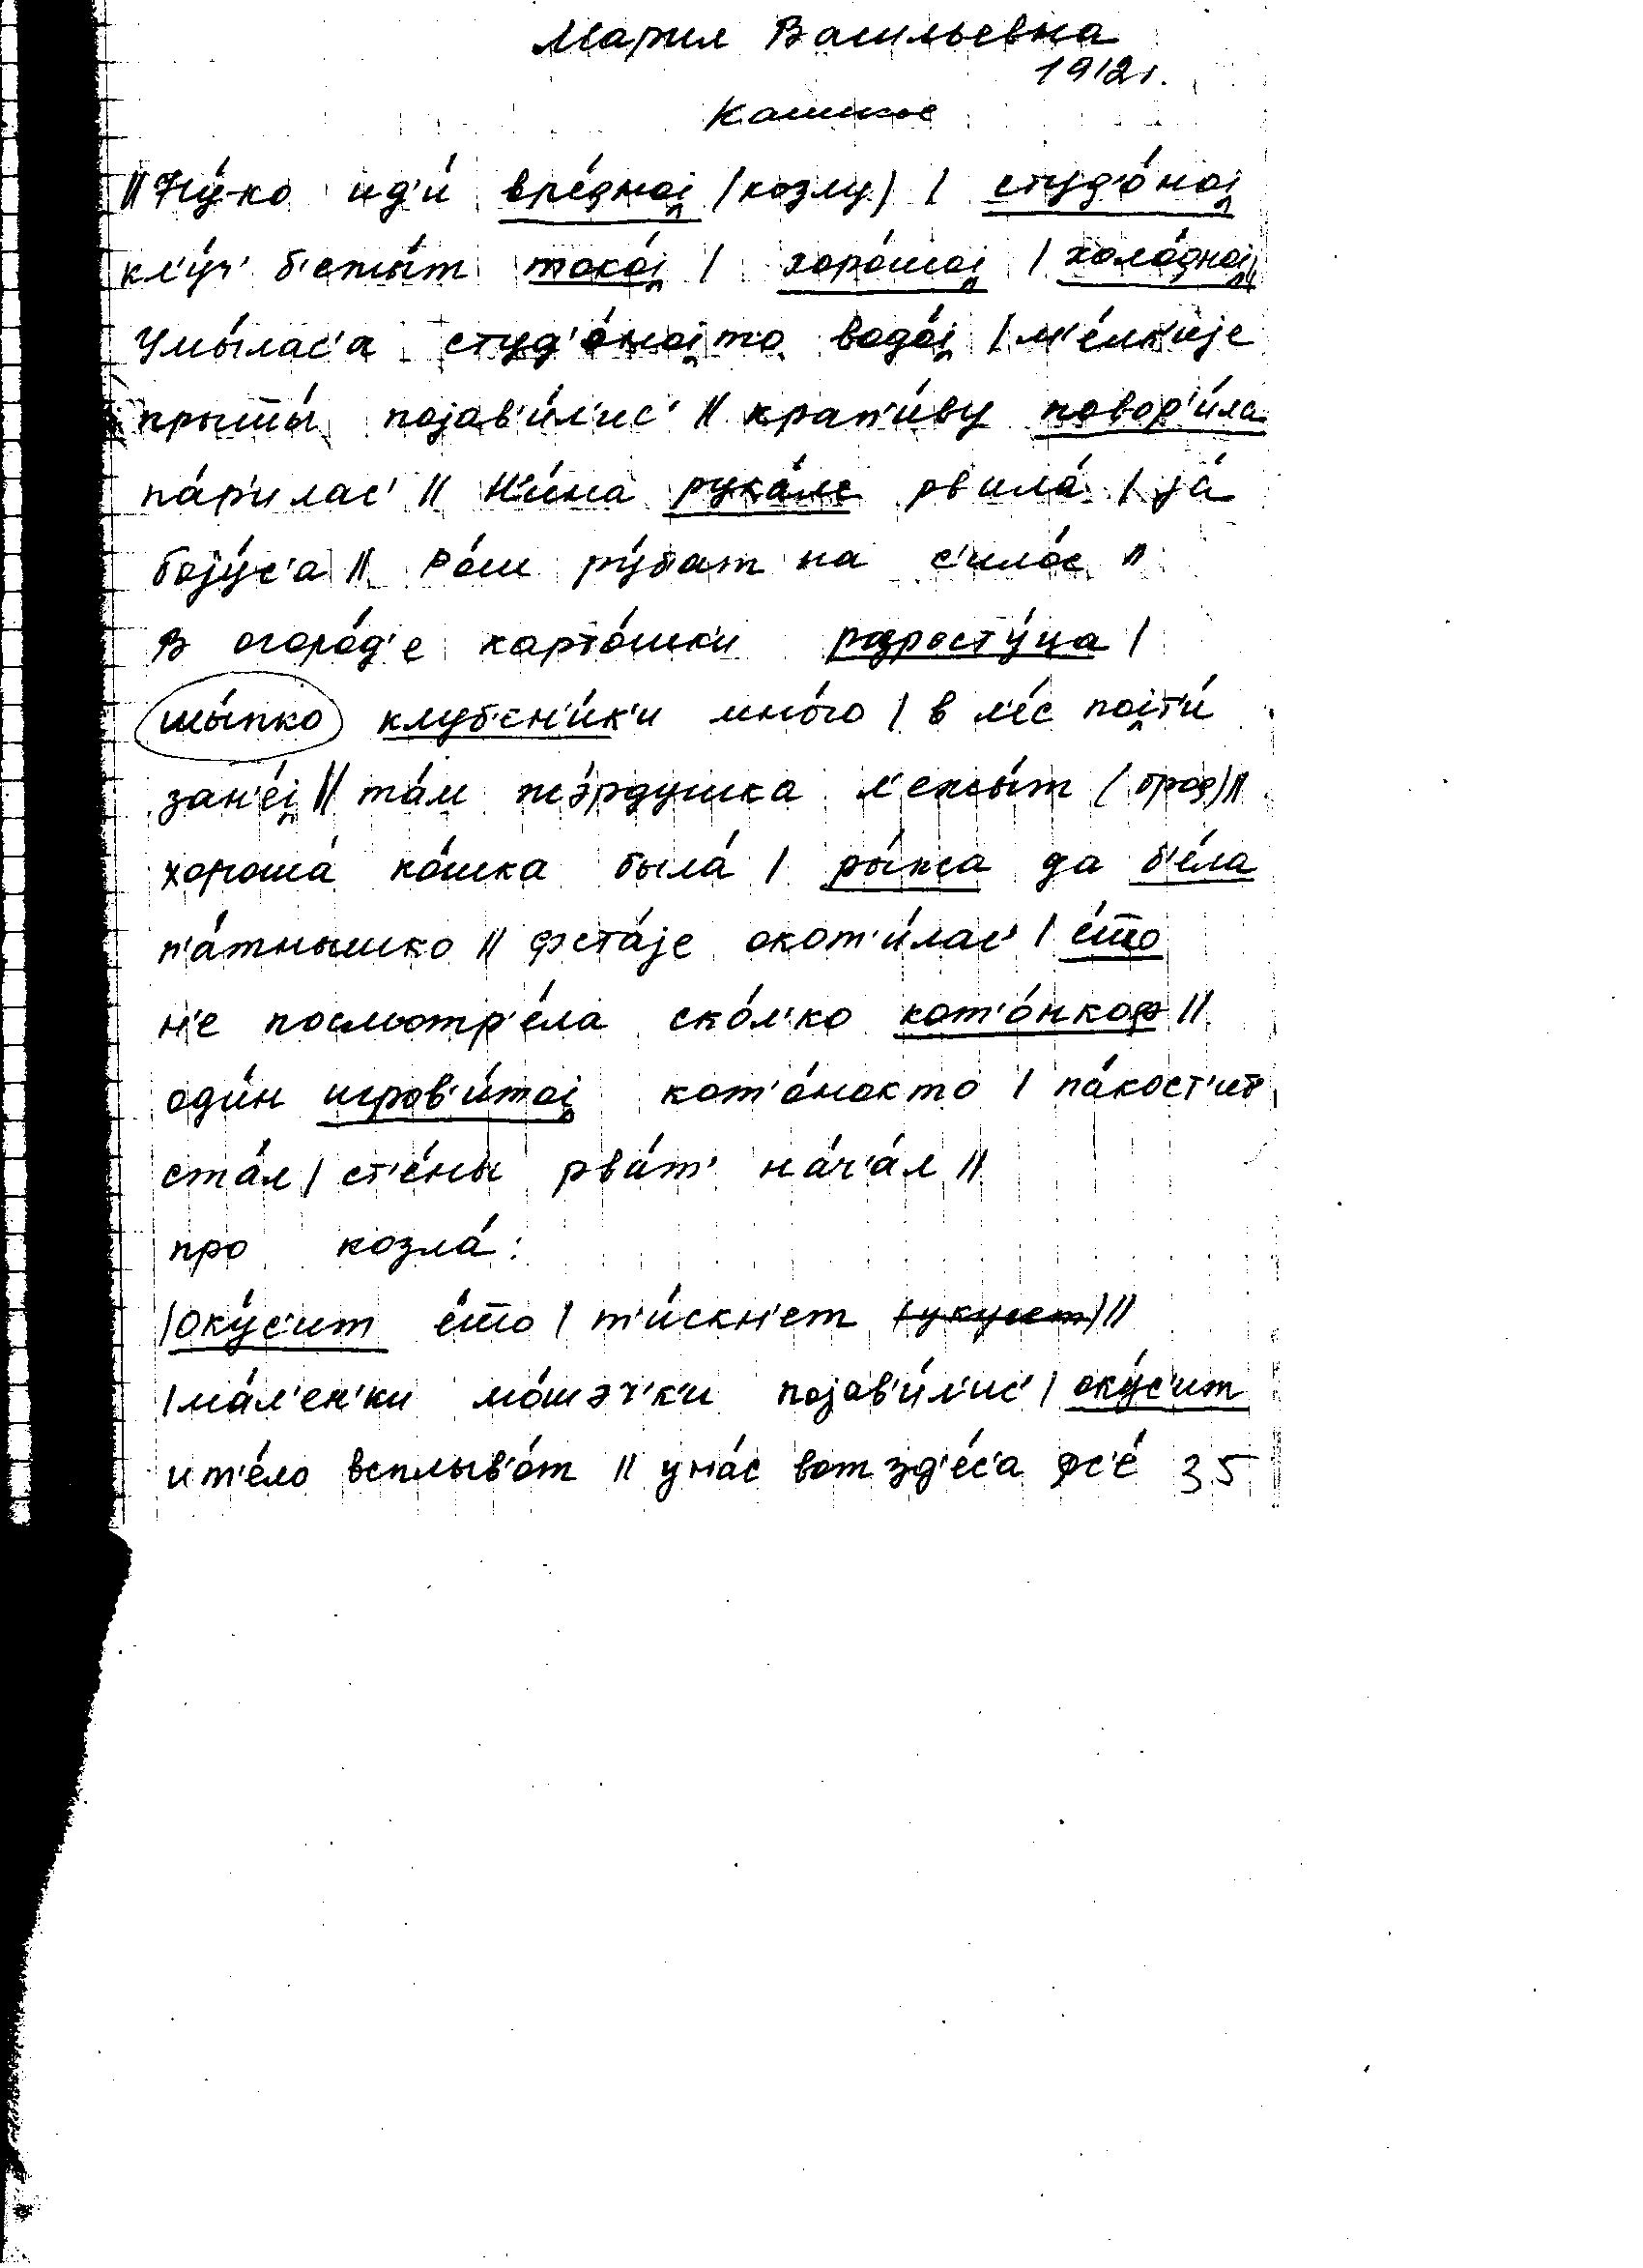 Мария Васильевна
1912г.
Кашкое
|| Ну́-ко ид'и́ вре́дној (козлу) | студ'о́ној
кл'у́ч' б'ежы́т тако́ј | хоро́шој | холо́дној ||
Умы́лас'а студ'о́нојто водо́ј | м'е́лк'ије
прышты́ појав'и́л'ис' || крап'и́ву повор'и́ла
па́рилас' || Н'и́на рука́ме рвила́ | ја́
боју́с'а || Ро́ш ру́бат на с'ило́с ||
В огоро́д'е карто́шки розросту́ца |
шы́пко клуб'ен'и́к'и мно́го | в л'е́с појт'и́
зан'е́ј || та́м жэ́рдушка л'ежы́т (брод) ||
хороша́ ко́шка была́ | ры́жа да б'е́ла
п'а́тнышко || фста́је окот'и́лас' | е́што
н'е посмотр'е́ла ско́л'ко кот'о́нкоф ||
оди́н игров'и́тој кот'о́нокто | па́кост'ит
ста́л | ст'е́ны рва́т' на́ч'а́л ||
про козла́:
| Оку́с'ит е́што | т'и́скн'ет (укусет) ||
| ма́л'ен'ки мо́шэч'к'и појав'и́л'ис' | оку́с'ит
ит'е́ло всплыв'о́т || уна́с вот зд'е́с'а фс'е́ 35